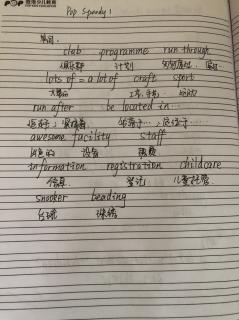 POP 泡泡少儿教育
Pop Speedy!
单词:
club programme run through
俱乐部 计划 匆匆看过
lots of = a lot of craft sport
大量的 工艺,手艺 运动
run after be located in...
追赶; 坐落于…,位于…
awesome facility staff
出色的 设备 职员
information registration childcare
信息 登记 儿童托管
snooker beading
台球 珠绣